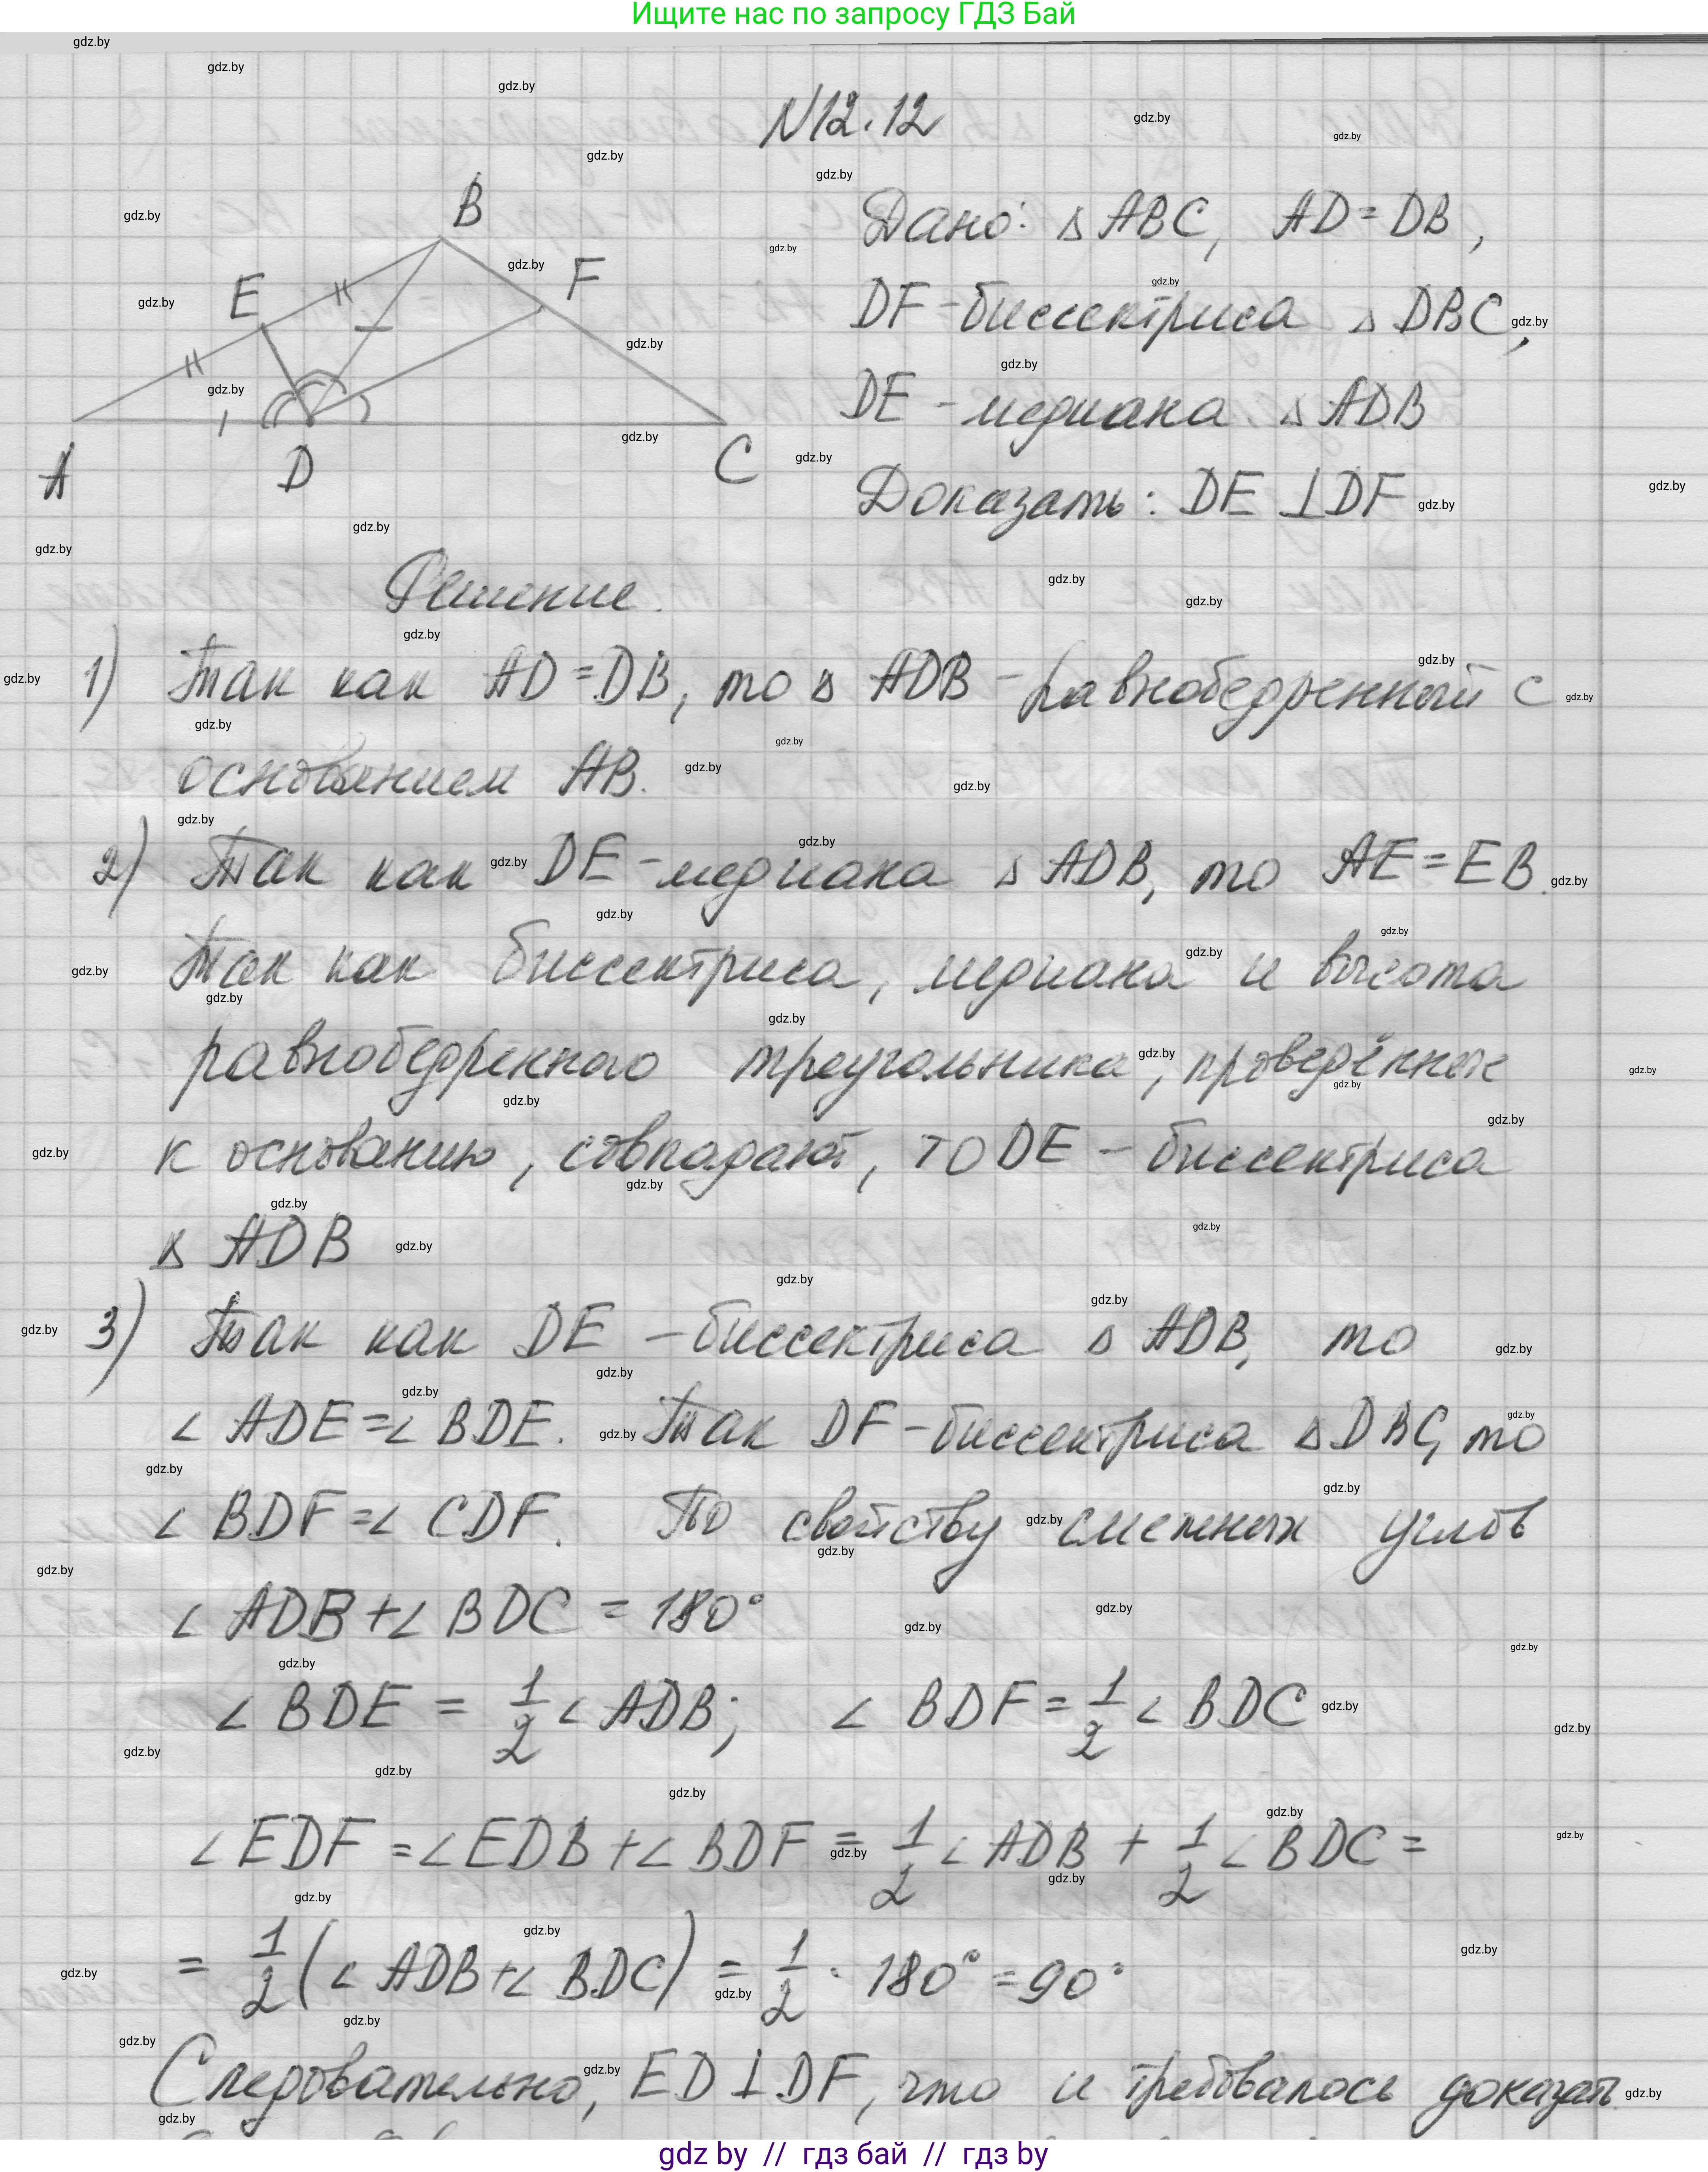 Ищите нас по запросу ГДЗ Бай
N12.12
B
E
F
A
D
C
Дано: Δ ABC, AD = DB,
DF - биссектриса Δ DBC,
DE - медиана Δ ADB
Доказать: DE ⊥ DF
Решение.
1) Так как AD = DB, то Δ ADB - равнобедренный с
основанием AB.
2) Так как DE - медиана Δ ADB, то AE = EB.
Так как биссектриса, медиана и высота
равнобедренного треугольника, проведённые
к основанию, совпадают, то DE - биссектриса
Δ ADB
3) Так как DE - биссектриса Δ ADB, то
∠ ADE = ∠ BDE. Так DF - биссектриса Δ DBC, то
∠ BDF = ∠ CDF. По свойству смежных углов
∠ ADB + ∠ BDC = 180°
∠ BDE = 1/2 ∠ ADB; ∠ BDF = 1/2 ∠ BDC
∠ EDF = ∠ EDB + ∠ BDF = 1/2 ∠ ADB + 1/2 ∠ BDC =
= 1/2 (∠ ADB + ∠ BDC) = 1/2 · 180° = 90°
Следовательно, ED ⊥ DF, что и требовалось доказать.
gdz by // гдз бай // гдз by